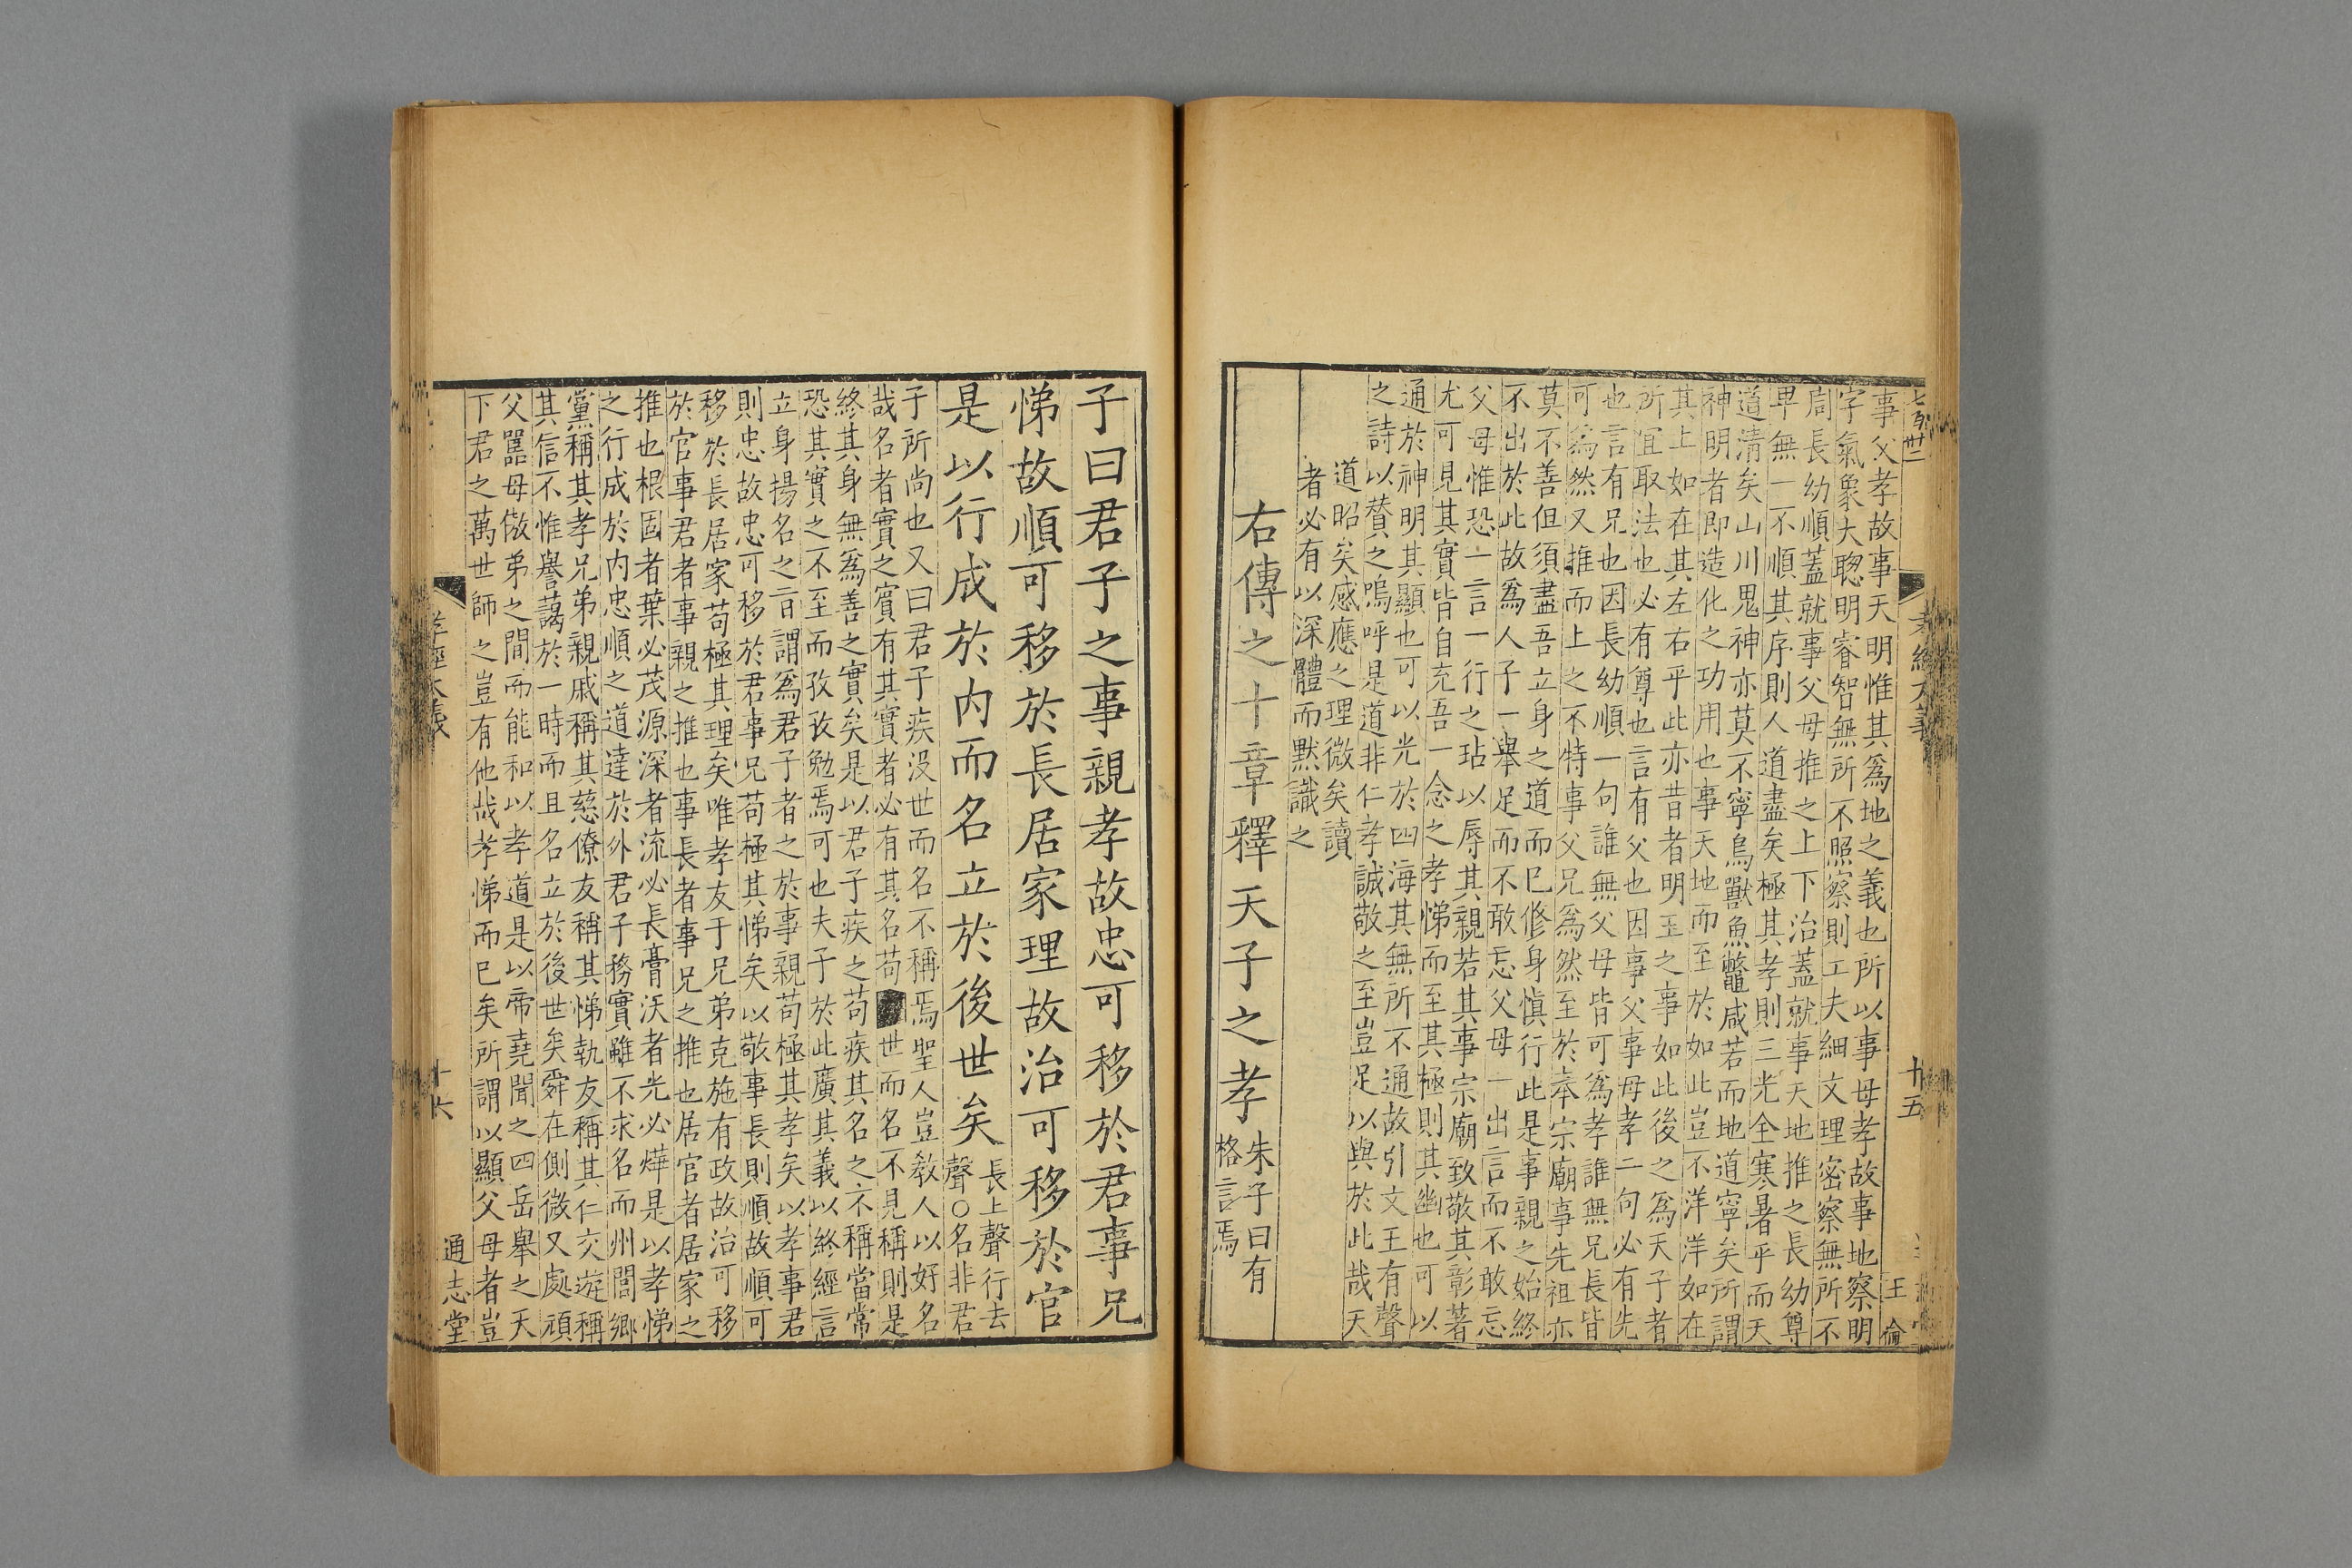 事父孝故事天明惟其爲地之義也所以事母孝故事地察明
字氣象大聦明睿智無所不照察則工夫細文理密察無所不
周長幼順蓋就事父母推之上下治蓋就事天地推之長幼尊
卑無一不順其序則人道盡矣極其孝則三光全寒暑平而天
道清矣山川鬼神亦莫不寧鳥獸魚鼈咸若而地道寧矣所謂
神明者即造化之功用也事天地而至於如此豈不洋洋如在
其上如在其左右乎此亦昔者明王之事如此後之爲天子者
所宜取法也必有尊也言有父也因事父事母孝二句必有先
也言有兄也因長幼順一句誰無父母皆可爲孝誰無兄長皆
可爲然又推而上之不特事父兄爲然至於奉宗廟事先祖亦
莫不善但須盡吾立身之道而已修身慎行此是事親之始終
不出於此故爲人子一舉足而不敢忘父母一出言而不敢忘
父母惟恐一言一行之玷以辱其親若其事宗廟致敬其彰著
尤可見其實皆自充吾一念之孝悌而至其極則其幽也可以
通於神明其顯也可以光於四海其無所不通故引文王有聲
之詩以賛之嗚呼是道非仁孝誠敬之至豈足以與於此哉天
道昭矣感應之理微矣讀
者必有以深體而默識之
右傳之十章釋天子之孝
朱子曰有
格言焉
十五
王
子曰君子之事親孝故忠可移於君事兄
悌故順可移於長居家理故治可移於官
是以行成於内而名立於後世矣
長上聲行去
聲○名非君
子所尚也又曰君子疾没世而名不稱焉聖人豈敎人以好名
哉名者實之賓有其實者必有其名苟世而名不見稱則是
終其身無爲善之實矣是以君子疾之苟疾其名之不稱當常
恐其實之不至而孜孜勉焉可也夫子於此廣其義以終經言
立身揚名之旨謂爲君子者之於事親苟極其孝矣以孝事君
則忠故忠可移於君事兄苟極其悌矣以敬事長則順故順可
移於長居家苟極其理矣唯孝友于兄弟克施有政故治可移
於官事君者事親之推也事長者事兄之推也居官者居家之
推也根固者葉必茂源深者流必長膏沃者光必燁是以孝悌
之行成於内忠順之道達於外君子務實雖不求名而州閭鄉
黨稱其孝兄弟親戚稱其慈僚友稱其悌執友稱其仁交遊稱
其信不惟譽藹於一時而且名立於後世矣舜在側微又處頑
父嚚母傲弟之間而能和以孝道是以帝堯聞之四岳舉之天
下君之萬世師之豈有他哉孝悌而已矣所謂以顯父母者豈
孝經大義
十六
通志堂